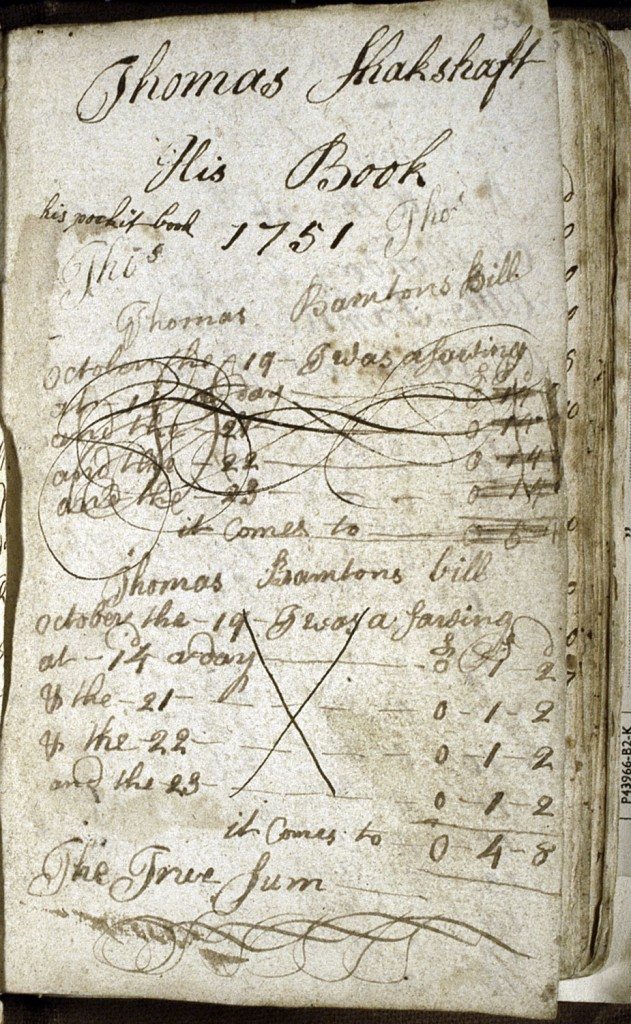 Thomas Shakshaft
His Book
his pockit book 1751 Thos
Thos
Thomas Bamtons Bill
October the 19 - I was a sawing
at - 14 a day 0 14
and the - 21 0 14
and the - 22 0 14
and the - 23 0 14
it Comes to 0
Thomas Bamtons bill
october the - 19 - I was a sawing
at - 14 a day £ S D
0 - 1 - 2
& the - 21 - 0 - 1 - 2
& the 22 - 0 - 1 - 2
and the 23 - 0 - 1 - 2
it Comes to 0 - 4 - 8
The True Sum
P43966-B2-K